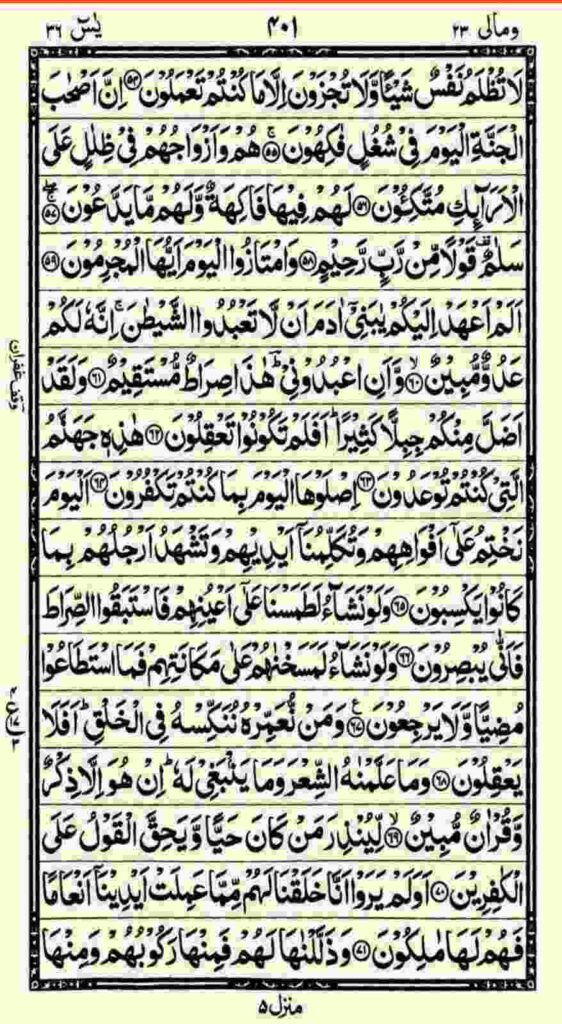 ومالی ۲۳ ۴۰۱ یٰسٓ ۳۶
لَا تُظْلَمُ نَفْسٌ شَيْـًٔا وَّلَا تُجْزَوْنَ اِلَّا مَا كُنْتُمْ تَعْمَلُوْنَ ۝۵۴ اِنَّ اَصْحٰبَ
الْجَنَّةِ الْيَوْمَ فِيْ شُغُلٍ فٰكِهُوْنَ ۝۵۵ هُمْ وَاَزْوَاجُهُمْ فِيْ ظِلٰلٍ عَلَى
الْاَرَآئِكِ مُتَّكِـُٔوْنَ ۝۵۶ لَهُمْ فِيْهَا فَاكِهَةٌ وَّلَهُمْ مَّا يَدَّعُوْنَ ۝۵۷
سَلٰمٌ ۣ قَوْلًا مِّنْ رَّبٍّ رَّحِيْمٍ ۝۵۸ وَامْتَازُوا الْيَوْمَ اَيُّهَا الْمُجْرِمُوْنَ ۝۵۹
اَلَمْ اَعْهَدْ اِلَيْكُمْ يٰبَنِيْٓ اٰدَمَ اَنْ لَّا تَعْبُدُوا الشَّيْطٰنَ ۚ اِنَّهٗ لَكُمْ
عَدُوٌّ مُّبِيْنٌ ۝۶۰ وَّاَنِ اعْبُدُوْنِيْ ؔؕ هٰذَا صِرَاطٌ مُّسْتَقِيْمٌ ۝۶۱ وَلَقَدْ
اَضَلَّ مِنْكُمْ جِبِلًّا كَثِيْرًا ؕ اَفَلَمْ تَكُوْنُوْا تَعْقِلُوْنَ ۝۶۲ هٰذِهٖ جَهَنَّمُ
الَّتِيْ كُنْتُمْ تُوْعَدُوْنَ ۝۶۳ اِصْلَوْهَا الْيَوْمَ بِمَا كُنْتُمْ تَكْفُرُوْنَ ۝۶۴ اَلْيَوْمَ
نَخْتِمُ عَلٰٓى اَفْوَاهِهِمْ وَتُكَلِّمُنَآ اَيْدِيْهِمْ وَتَشْهَدُ اَرْجُلُهُمْ بِمَا
كَانُوْا يَكْسِبُوْنَ ۝۶۵ وَلَوْ نَشَآءُ لَطَمَسْنَا عَلٰٓى اَعْيُنِهِمْ فَاسْتَبَقُوا الصِّرَاطَ
فَاَنّٰى يُبْصِرُوْنَ ۝۶۶ وَلَوْ نَشَآءُ لَمَسَخْنٰهُمْ عَلٰى مَكَانَتِهِمْ فَمَا اسْتَطَاعُوْا
مُضِيًّا وَّلَا يَرْجِعُوْنَ ۝۶۷ وَمَنْ نُّعَمِّرْهُ نُنَكِّسْهُ فِي الْخَلْقِ ؕ اَفَلَا
يَعْقِلُوْنَ ۝۶۸ وَمَا عَلَّمْنٰهُ الشِّعْرَ وَمَا يَنْۢبَغِيْ لَهٗ ؕ اِنْ هُوَ اِلَّا ذِكْرٌ
وَّقُرْاٰنٌ مُّبِيْنٌ ۝۶۹ لِّيُنْذِرَ مَنْ كَانَ حَيًّا وَّيَحِقَّ الْقَوْلُ عَلَى
الْكٰفِرِيْنَ ۝۷۰ اَوَلَمْ يَرَوْا اَنَّا خَلَقْنَا لَهُمْ مِّمَّا عَمِلَتْ اَيْدِيْنَآ اَنْعَامًا
فَهُمْ لَهَا مٰلِكُوْنَ ۝۷۱ وَذَلَّلْنٰهَا لَهُمْ فَمِنْهَا رَكُوْبُهُمْ وَمِنْهَا
وقف غفران
منزل ۵